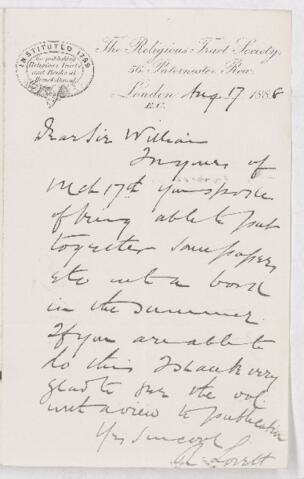 INSTITUTED 1799
The Religious Tract Society,
56, Paternoster Row,
London Aug. 17 1888
E.C.
Dear Sir William
In yours of
Mch 17th you spoke
of being able to put
together some papers
etc into a book
in the summer.
If you are able to
do this I shall be very
glad to see the vol.
with a view to publication
Yrs sincerely
R. Lovett